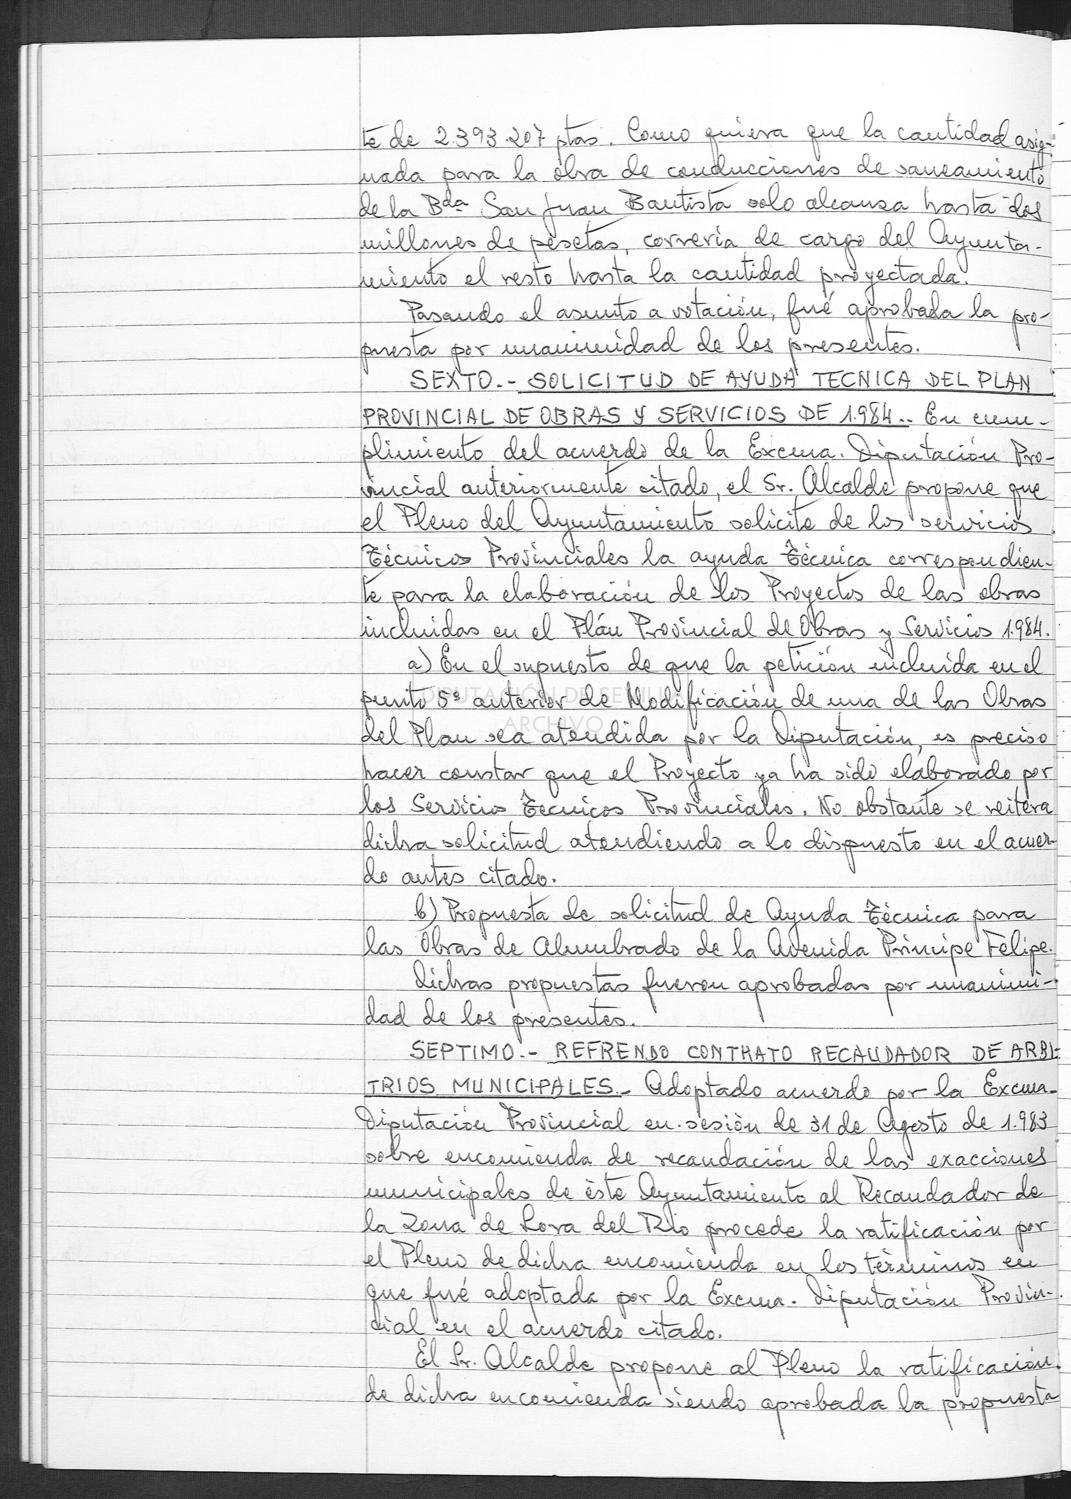 te de 2.393.207 ptas. Como quiera que la cantidad asig-
nada para la obra de conducciones de saneamiento
de la Bda San Juan Bautista solo alcanza hasta dos
millones de pesetas, correría de cargo del Ayunta-
miento el resto hasta la cantidad proyectada.
Pasando el asunto a votación, fué aprobada la pro-
puesta por unanimidad de los presentes.
SEXTO.- SOLICITUD DE AYUDA TECNICA DEL PLAN
PROVINCIAL DE OBRAS Y SERVICIOS DE 1.984.- En cum-
plimiento del acuerdo de la Excma. Diputación Pro-
vincial anteriormente citado, el Sr. Alcalde propone que
el Pleno del Ayuntamiento solicite de los servicios
Técnicos Provinciales la ayuda técnica correspondien-
te para la elaboración de los Proyectos de las obras
incluidas en el Plán Provincial de Obras y Servicios 1.984.
a) En el supuesto de que la petición incluida en el
punto 5º anterior de Modificación de una de las Obras
DIPUTACIÓN DE SEVILLA
ARCHIVO
del Plan sea atendida por la Diputación, es preciso
hacer constar que el Proyecto ya ha sido elaborado por
los Servicios Técnicos Provinciales. No obstante se reitera
dicha solicitud atendiendo a lo dispuesto en el acuer-
do antes citado.
b) Propuesta de solicitud de Ayuda Técnica para
las Obras de Alumbrado de la Avenida Príncipe Felipe.
Dichas propuestas fueron aprobadas por unanimi-
dad de los presentes.
SEPTIMO.- REFRENDO CONTRATO RECAUDADOR DE ARBI-
TRIOS MUNICIPALES.- Adoptado acuerdo por la Excma.
Diputación Provincial en sesión de 31 de Agosto de 1.983
sobre encomienda de recaudación de las exacciones
municipales de éste Ayuntamiento al Recaudador de
la Zona de Lora del Río procede la ratificación por
el Pleno de dicha encomienda en los términos en
que fué adoptada por la Excma. Diputación Provin-
cial en el acuerdo citado.
El Sr. Alcalde propone al Pleno la ratificación
de dicha encomienda siendo aprobada la propuesta